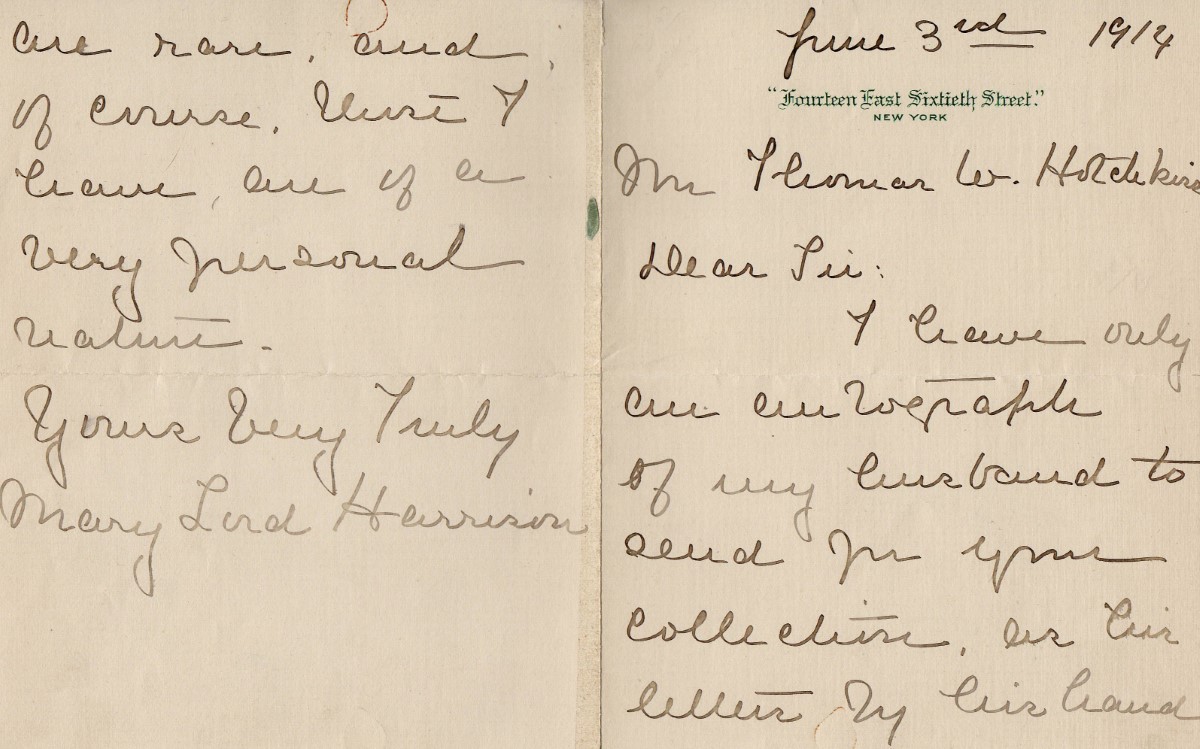 June 3rd 1914
"Fourteen East Sixtieth Street."
NEW YORK
Mr Thomas W. Hotchkiss
Dear Sir:
I have only
an autograph
of my husband to
send for your
collection, as his
letters by his hand
are rare, and,
of course, those I
have, are of a
very personal
nature.
Yours Very Truly
Mary Lord Harrison